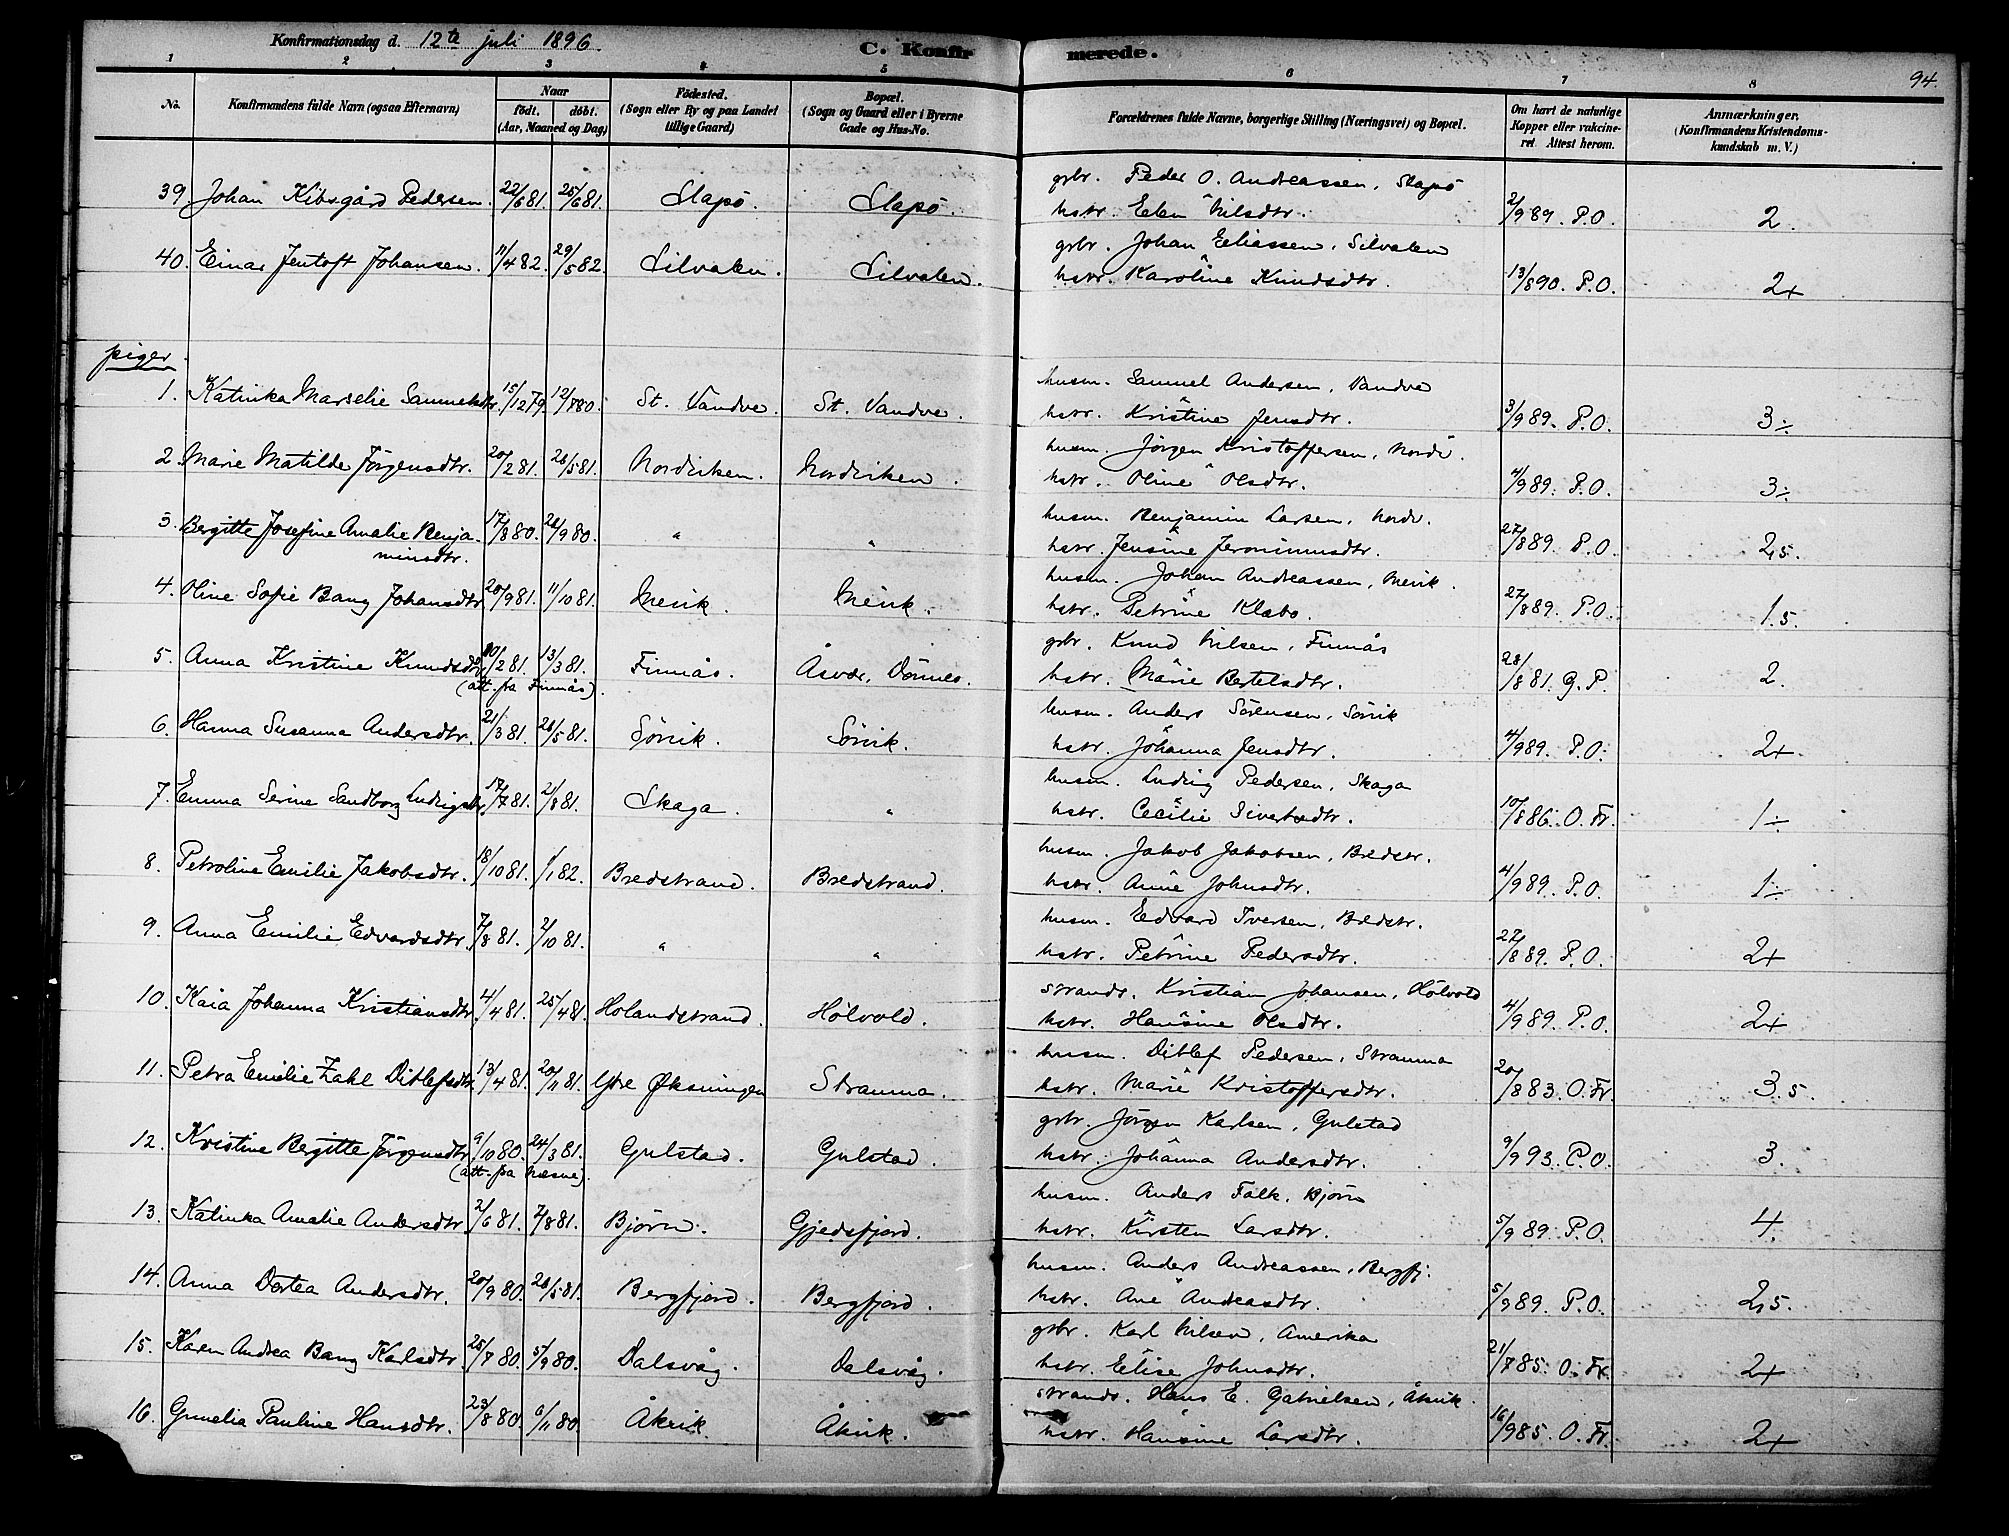 Konfirmationsdag d. 12te juli 1896.
C. Konfirmerede.
94.
1 2 3 4 5 6 7 8
No. Konfirmandens fulde Navn (ogsaa Efternavn) Naar födt. döbt. (Aar, Maaned og Dag) Födested. (Sogn eller By og paa Landet tillige Gaard) Bopæl. (Sogn og Gaard eller i Byerne Gade og Hus-No. Forældrenes fulde Navne, borgerlige Stilling (Næringsvei) og Bopæl. Om havt de naturlige Kopper eller vakcineret. Attest herom. Anmærkninger. (Konfirmandens Kristendomskundskab m. V.)
grbr. Peder O. Andreassen, Slapö
39 Johan Kibsgård Pedersen. 22/6 81. 25/6 81. Slapö. Slapö. hstr. Elen Nilsdtr. 2/9 89. P.O. 2.
grbr. Johan Eliassen, Silvalen
40. Einar Jentoft Johansen. 11/4 82. 29/5 82. Silvalen. Silvalen. hstr. Karoline Knudsdtr. 13/8 90. P.O. 2+
piger.
husm. Samuel Andersen, Vandve
1. Katinka Marselie Samuelsdtr. 15/12 79. 12/8 80. St. Vandve. St. Vandve. hstr. Kristine Jensdtr. 3/9 89. P.O. 3÷
husm. Jörgen Kristoffersen, Nordv.
2. Marie Matilde Jörgensdtr. 20/2 81. 26/5 81. Nordviken. Nordviken. hstr. Oline Olsdtr. 4/9 89. P.O. 3÷
husm. Benjamin Larsen, Nordv.
3. Bergitte Josefine Amalie Benja- 17/8 80. 26/9 80. " " hstr. Jensine Jeronimusdtr. 27/8 89. P.O. 2,5.
minsdtr.
husm. Johan Andreassen, Mevik.
4. Oline Sofie Bang Johansdtr. 20/9 81. 11/10 81. Mevik. Mevik. hstr. Petrine Klæbo. 27/8 89. P.O. 1.5.
grbr. Knud Nilsen, Finnås
5. Anna Kristine Knudsdtr. 10/2 81. 13/3 81. Finnås. Åsvær, Dönnes. hstr. Marie Bertelsdtr. 28/8 81. G.P. 2.
(att. fra Finnås).
husm. Anders Sörensen, Sörvik
6. Hanna Susanna Andersdtr. 21/3 81. 26/5 81. Sörvik. Sörvik. hstr. Johanna Jensdtr. 4/9 89. P.O. 2+
husm. Ludvig Pedersen, Skaga
7. Emma Serine Sandborg Ludvigsdtr. 17/7 81. 21/8 81. Skaga. " hstr. Cecilie Sivertsdtr. 10/8 86. O. Fr. 1÷
husm. Jakob Jakobsen, Bredstr.
8. Petroline Emilie Jakobsdtr. 18/10 81. 1/1 82. Bredstrand. Bredstrand. hstr. Anne Johnsdtr. 4/9 89. P.O. 1÷
husm. Edvard Iversen, Bredstr.
9. Anna Emilie Edvardsdtr. 7/8 81. 2/10 81. " " hstr. Petrine Pedersdtr. 27/8 89. P.O. 2+
strands. Kristian Johansen, Hölvold
10. Kaia Johanna Kristiansdtr. 4/4 81. 25/4 81. Holandstrand. Hölvold. hstr. Hansine Olsdtr. 4/9 89. P.O. 2+
husm. Ditlef Pedersen, Stramma
11. Petra Emilie Zahl Ditlefsdtr. 13/4 81. 20/11 81. Ytre Øksningen Stramma. hstr. Marie Kristoffersdtr. 20/8 83. O. Fr. 3.5.
grbr. Jörgen Karlsen, Gulstad
12. Kristine Bergitte Jörgensdtr. 9/10 80. 24/3 81. Gulstad. Gulstad. hstr. Johanna Andersdtr. 9/9 93. C.O. 3.
(att. fra Næsne).
husm. Anders Falk, Bjørn
13. Katinka Amalie Andersdtr. 2/6 81. 7/8 81. Bjørn. Gjedsfjord. hstr. Kirsten Larsdtr. 5/9 89. P.O. 4.
husm. Anders Andreassen, Bergfj.
14. Anna Dortea Andersdtr. 20/9 80. 26/5 81. Bergfjord. Bergfjord. hstr. Ane Andreasdtr. 5/9 89. P.O. 2,5.
grbr. Karl Nilsen, Amerika
15. Karen Andrea Bang Karlsdtr. 25/7 80. 5/9 80. Dalsvåg. Dalsvåg. hstr. Elise Johnsdtr. 21/7 85. O. Fr. 2+
strands. Hans E. Gabrielsen, Åkvik.
16. Gunelia Pauline Hansdtr. 23/8 80. 6/11 80. Åkvik. Åkvik. hstr. Hansine Larsdtr. 16/9 85. O. Fr. 2+